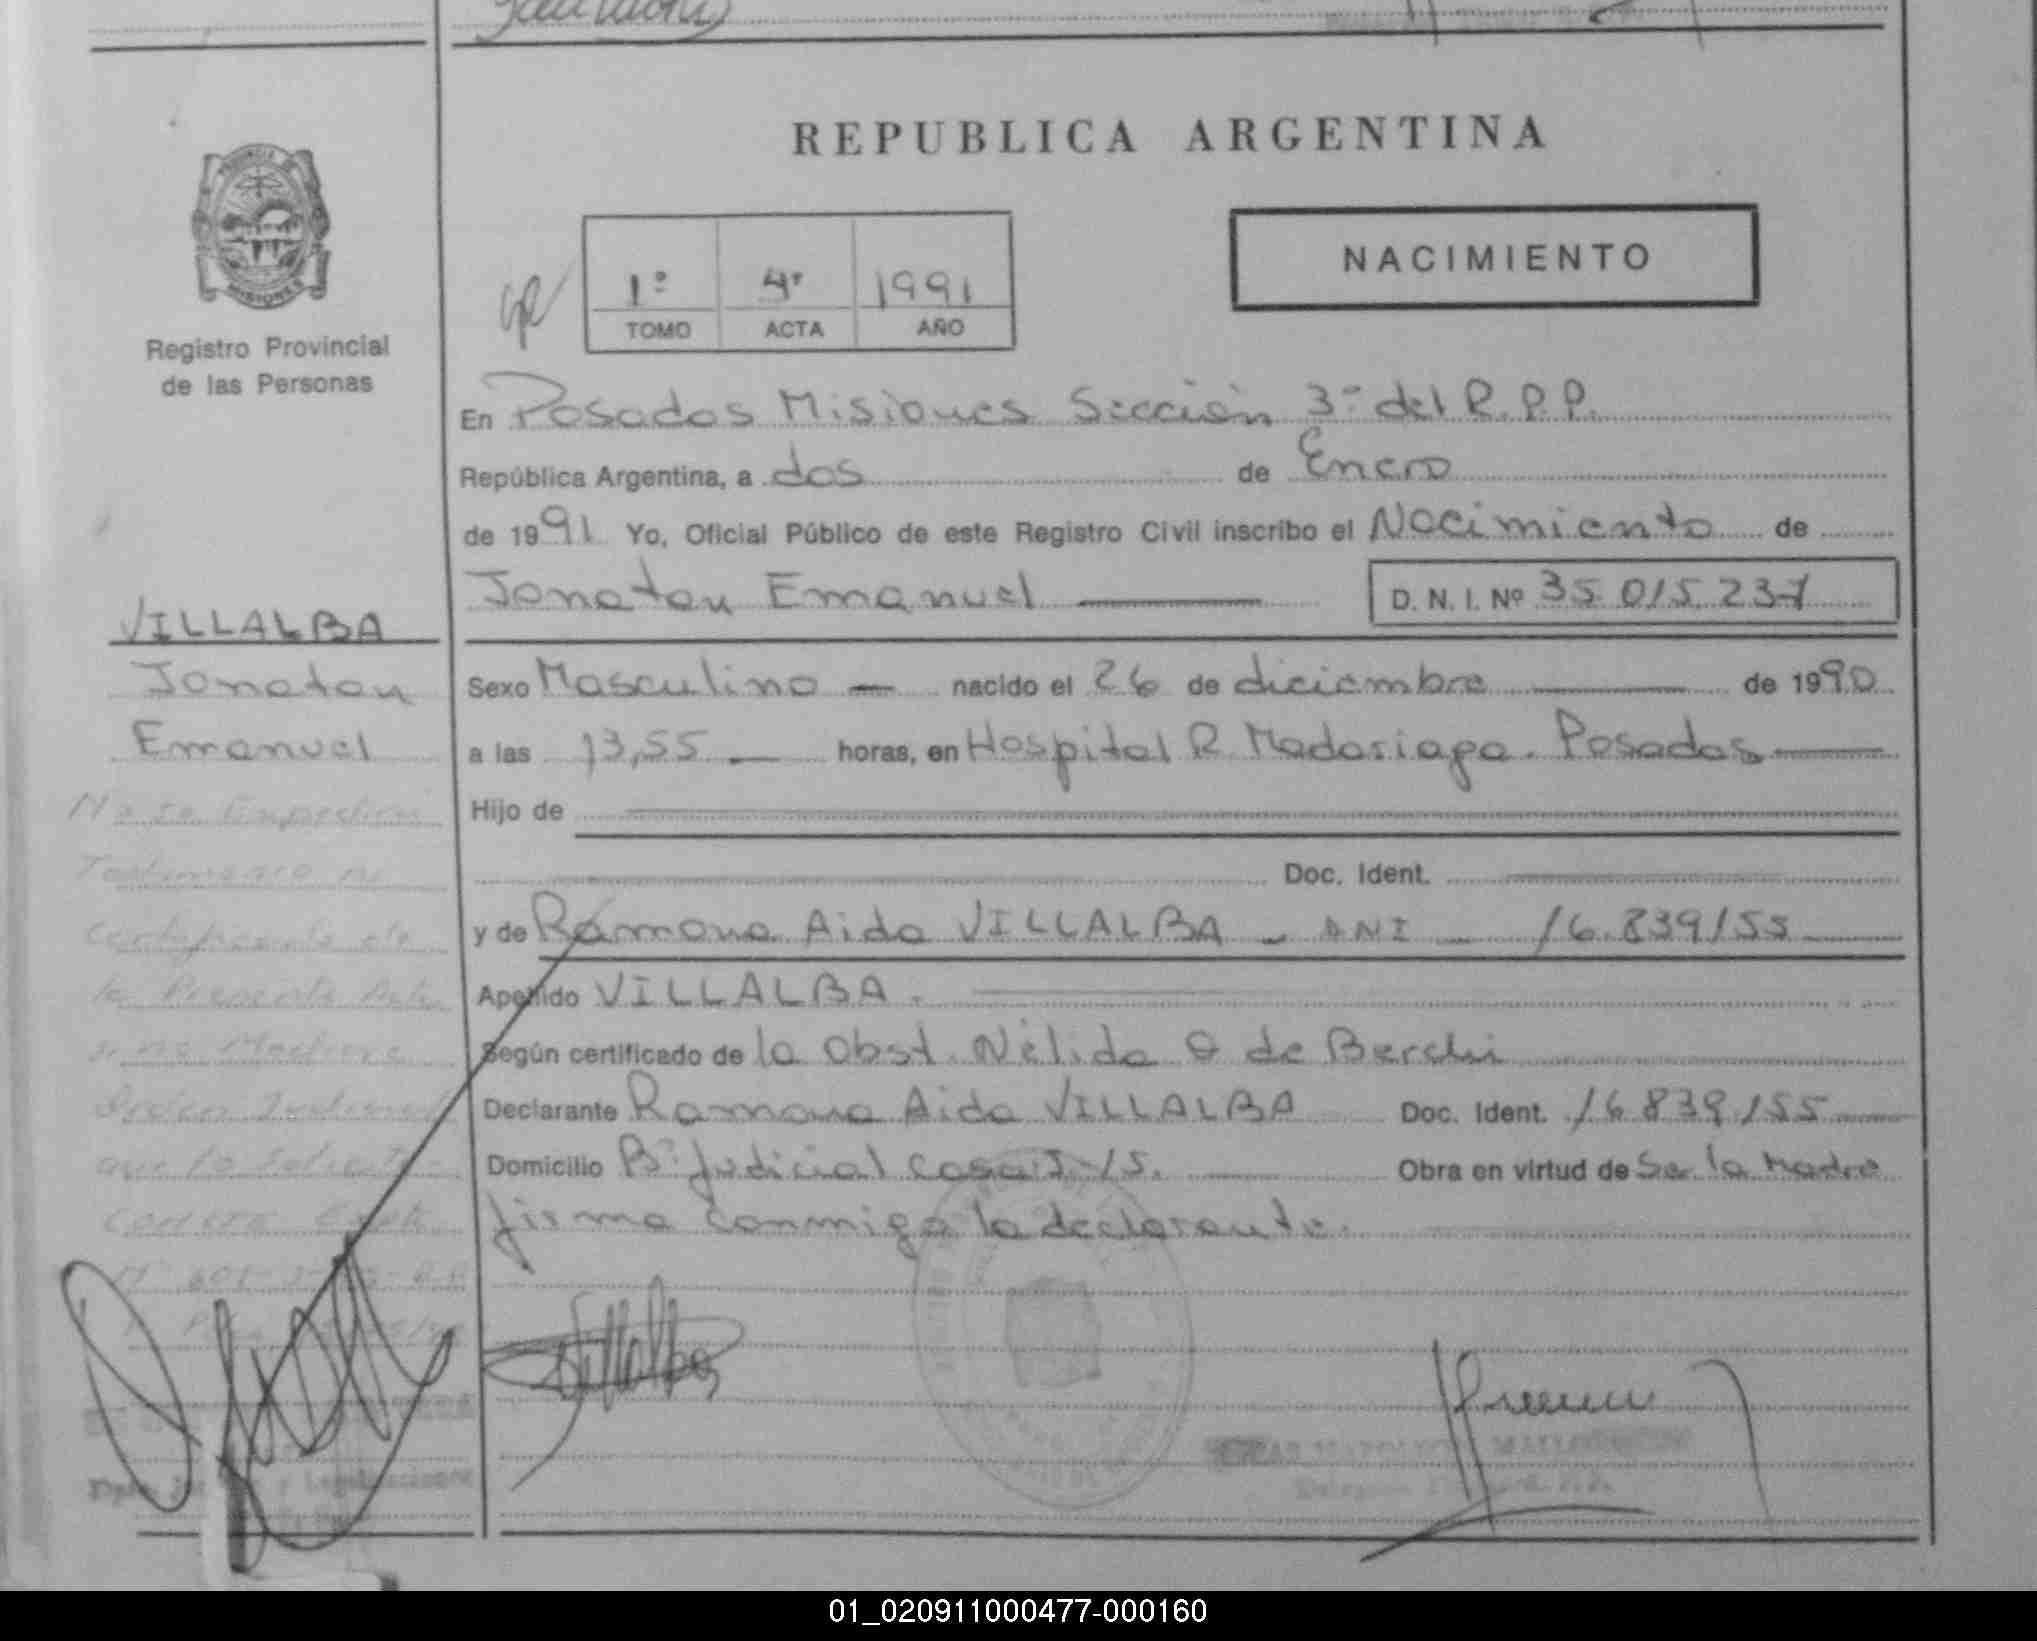 REPUBLICA ARGENTINA
NACIMIENTO
1º 4º 1991
TOMO ACTA AÑO
Registro Provincial
de las Personas
En Posadas Misiones Sección 3º del R.P.P.
República Argentina, a dos de Enero
de 1991 Yo, Oficial Público de este Registro Civil inscribo el Nacimiento de
Jonatan Emanuel D. N. I. Nº 35.015.237
VILLALBA
Jonatan
Emanuel
Sexo Masculino nacido el 26 de diciembre de 1990
a las 13,55 horas, en Hospital R. Madariaga. Posadas
Hijo de
Doc. Ident.
y de Ramona Aida VILLALBA - DNI - 16.839155
Apellido VILLALBA.
Según certificado de la Obst. Nélida G de Berchi
Declarante Ramona Aida VILLALBA Doc. Ident. 16839155
Domicilio Bº Judicial casa I-15. Obra en virtud de Ser la Madre
firma conmigo la declarante.
No se Expedirá
Testimonio ni
Certificado de
la Presente Acta
si no Mediare
Orden Judicial
que lo solicite
Villalba
01_020911000477-000160